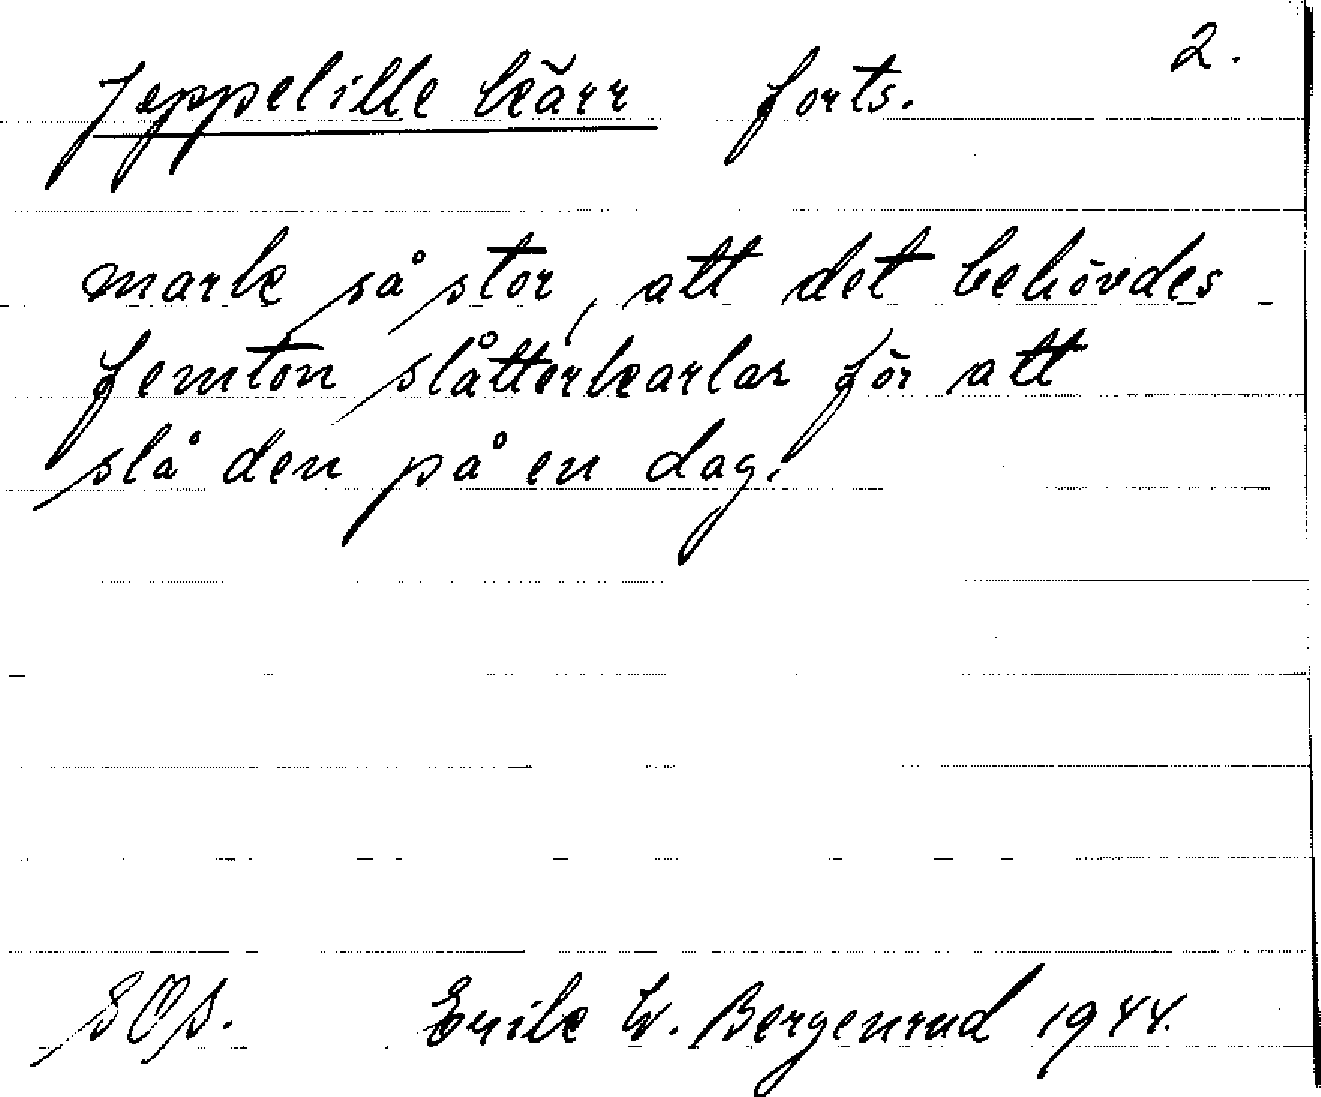 2.
Jeppelille kärr forts.
mark så stor, att det behövdes
femton slåtterkarlar för att
slå den på en dag.
SOS. Erik W. Bergenrud 1944.